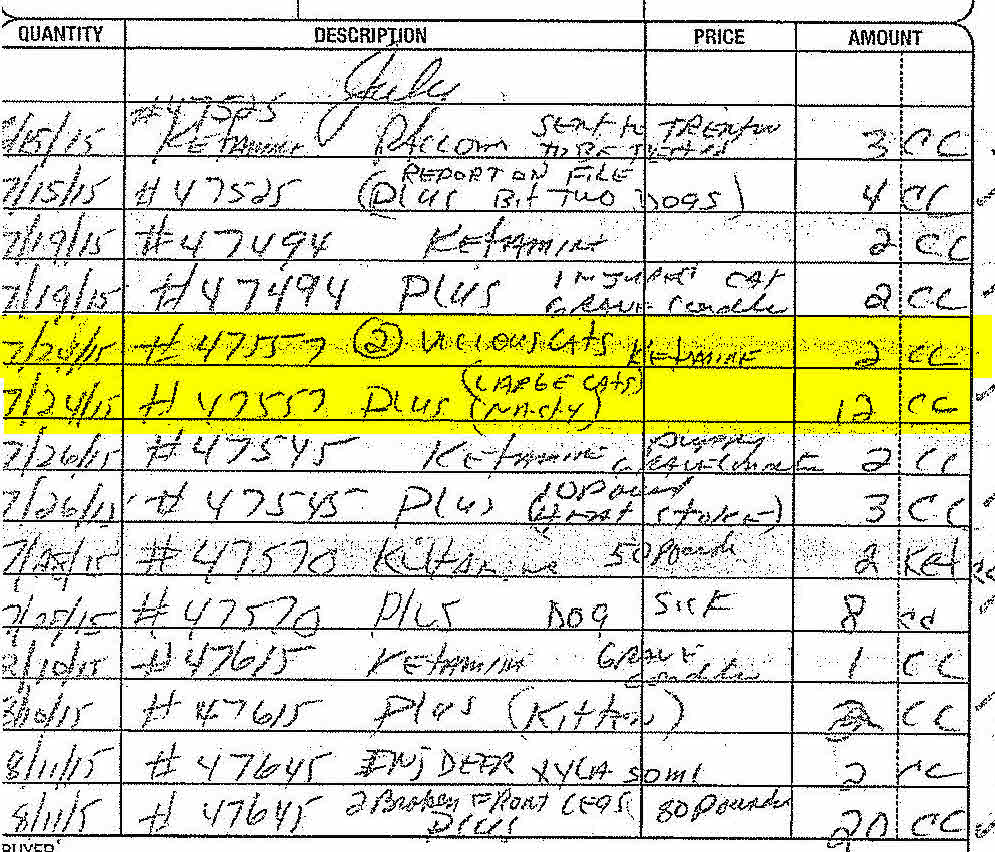 QUANTITY DESCRIPTION PRICE AMOUNT
July
#47525
/15/15 KETAMINE RACCOON SENT TO TRENTON TO BE TESTED 3 CC
7/15/15 #47525 (PLUS REPORT ON FILE BIT TWO DOGS) 4 CC
7/19/15 #47494 KETAMINE 2 CC
7/19/15 #47494 PLUS INJURED CAT GRAVE Condition 2 CC
7/24/15 #47557 (2) VICIOUS CATS KETAMINE 2 CC
7/24/15 #47557 PLUS (LARGE CATS) (NASTY) 12 CC
7/26/15 #47545 KETAMINE PUPPY GRAVE 2 CC
7/26/15 #47545 PLUS (10 Pound HEAT STOKE) 3 CC
7/28/15 #47570 50 Pounds 2 Ket
7/28/15 #47570 PLUS DOG SICK 8 cc
8/10/15 #47615 KETAMINE GRAVE 1 CC
8/10/15 #47615 PLUS (Kitten) CC
8/11/15 #47645 INJ DEER XYLA 50ml 2 CC
8/11/15 #47645 2 Broken FRONT LEGS PLUS 80 Pounds 20 CC
BUYER